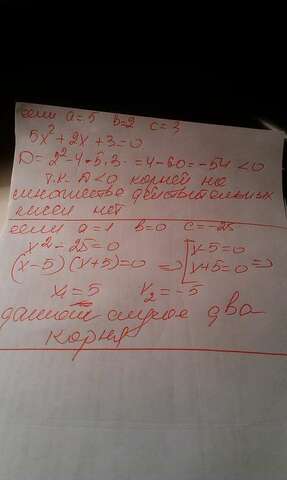 если a=5 b=2 c=3
5x²+2x+3=0
D=2²-4·5·3=4-60=-54<0
т.к. D<0 корней на
множестве действительных
чисел нет
если a=1 b=0 c=-25
x²-25=0 [x-5=0
(x-5)(x+5)=0 => [x+5=0 =>
x₁=5 x₂=-5
данном случае два
корня